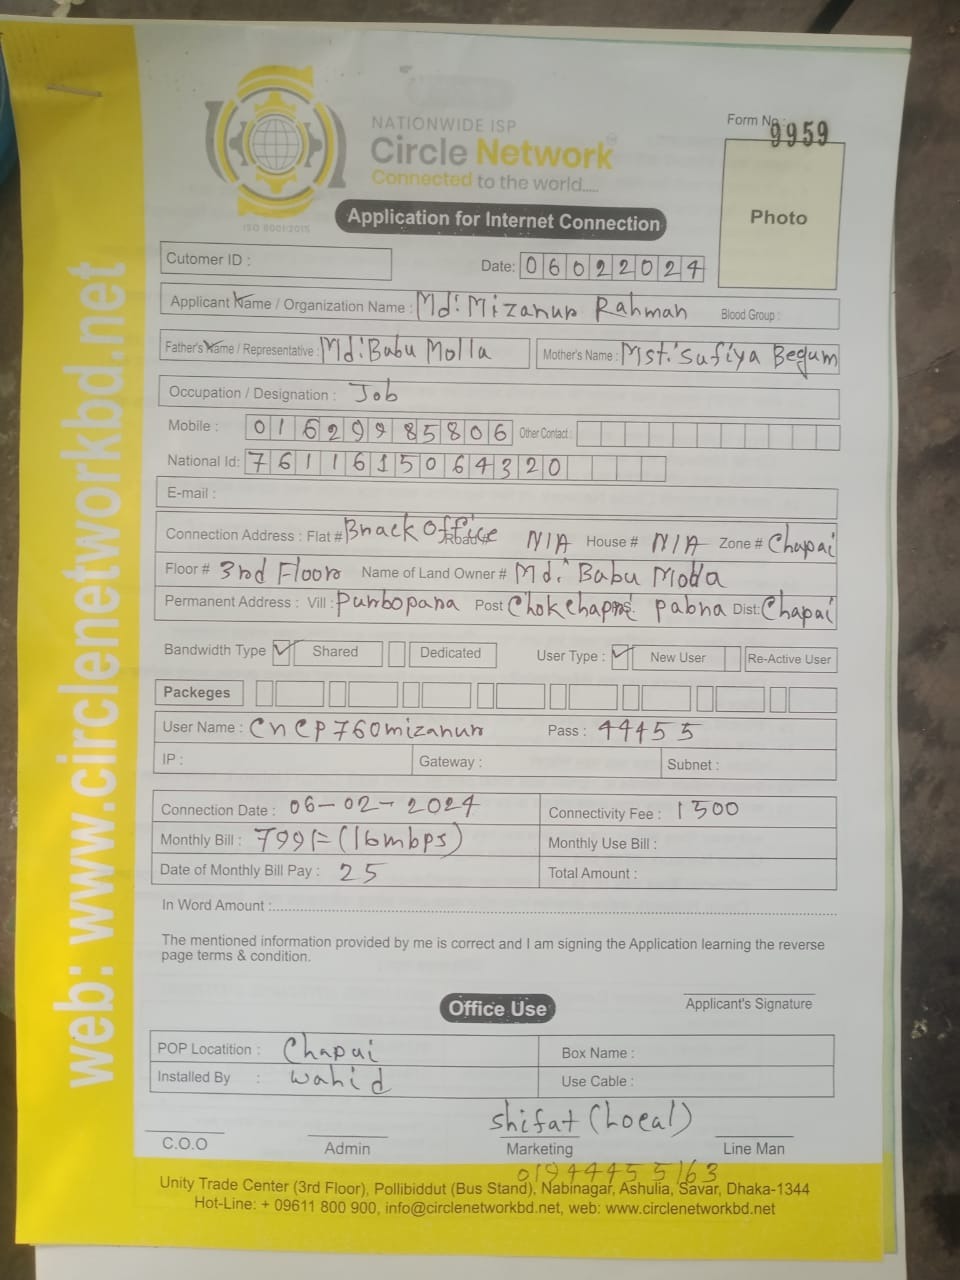 NATIONWIDE ISP
Circle Network
Connected to the world.....
ISO 9001:2015
Form No.: 9959
Photo
Application for Internet Connection
Cutomer ID :
Date: 06022024
Applicant Name / Organization Name : Md: Mizanur Rahman Blood Group :
Father's Name / Representative : Md: Babu Molla Mother's Name : Mst: Sufiya Begum
Occupation / Designation : Job
Mobile : 01629985806 Other Contact :
National Id: 7611615064320
E-mail :
Connection Address : Flat # Brack Office Road # N/A House # N/A Zone # Chapai
Floor # 3rd Floor Name of Land Owner # Md: Babu Molla
Permanent Address : Vill : Purbopara Post Chokchapai P.S. pabna Dist: Chapai
Bandwidth Type Shared Dedicated User Type : New User Re-Active User
Packeges
User Name : CNCP760mizanur Pass : 44455
IP : Gateway : Subnet :
Connection Date : 06-02-2024 Connectivity Fee : 1500
Monthly Bill : 799/= (16mbps) Monthly Use Bill :
Date of Monthly Bill Pay : 25 Total Amount :
In Word Amount :
The mentioned information provided by me is correct and I am signing the Application learning the reverse
page terms & condition.
Applicant's Signature
Office Use
POP Locatition : Chapai Box Name :
Installed By : Wahid Use Cable :
shifat (Local)
C.O.O Admin Marketing Line Man
01944455163
Unity Trade Center (3rd Floor), Pollibiddut (Bus Stand), Nabinagar, Ashulia, Savar, Dhaka-1344
Hot-Line: + 09611 800 900, info@circlenetworkbd.net, web: www.circlenetworkbd.net
web: www.circlenetworkbd.net